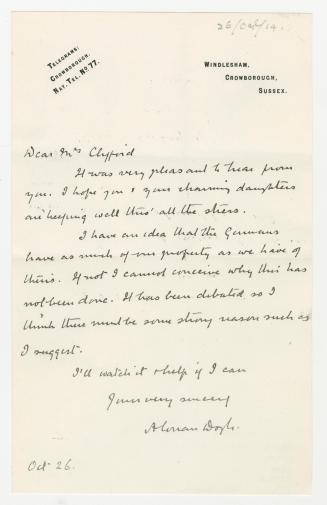 26/Oct/14.
TELEGRAMS:
CROWBOROUGH.
NAT. TEL. NO 77.
WINDLESHAM,
CROWBOROUGH,
SUSSEX.
Dear Mrs Clifford
It was very pleasant to hear from
you. I hope you & your charming daughters
are keeping well thro' all the stress.
I have an idea that the Germans
have as much of our property as we have of
theirs. If not I cannot conceive why this has
not been done. It has been debated so I
think there must be some strong reason such as
I suggest.
I'll watch it & help if I can
Yours very sincerely
A Conan Doyle.
Oct 26.